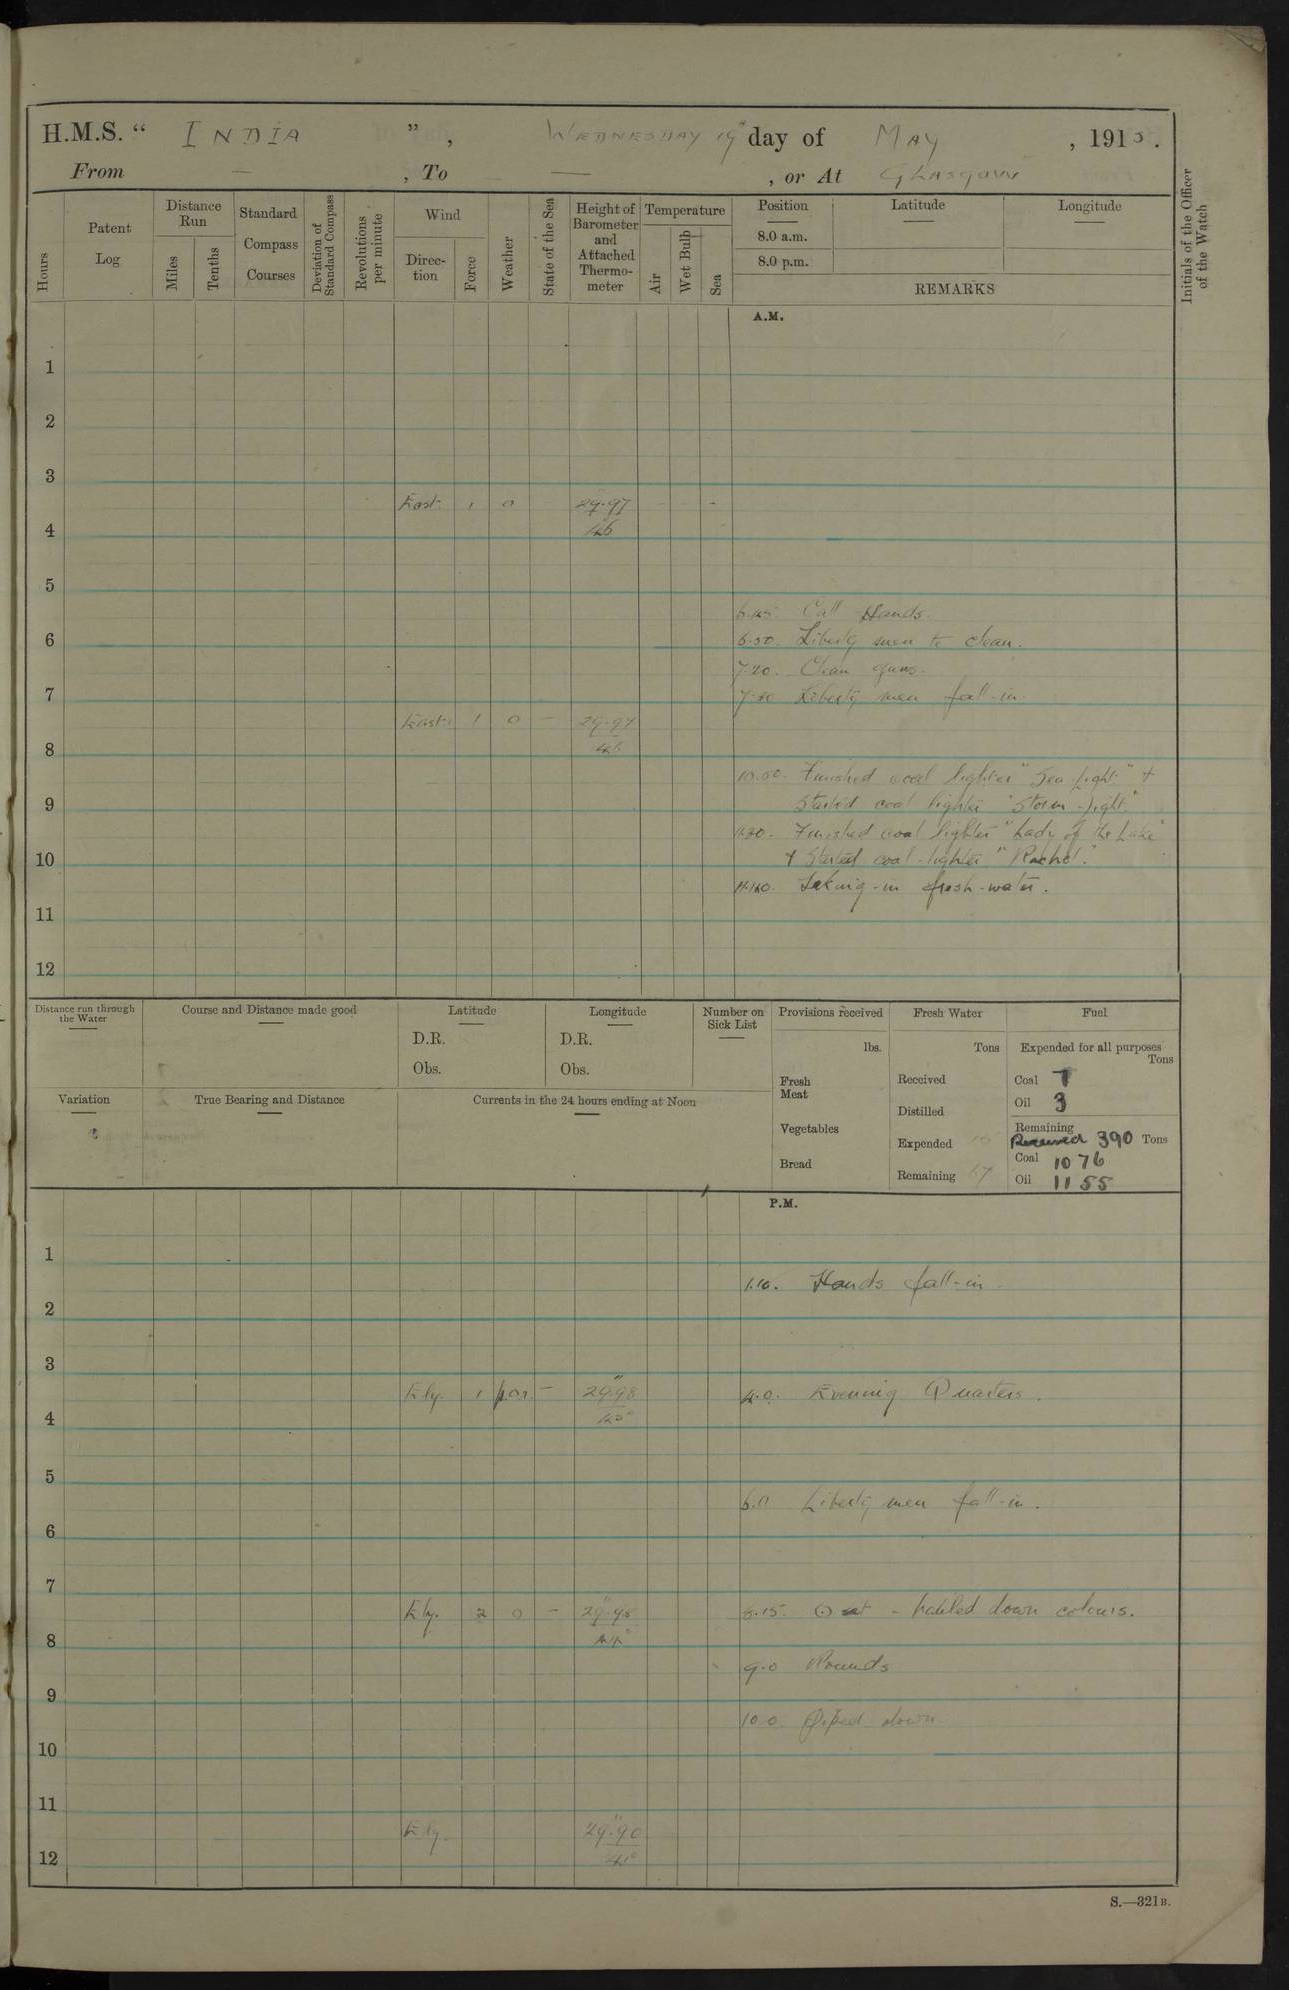 H.M.S. “ INDIA ”, WEDNESDAY 19th day of MAY, 1915.
From — , To — , or At Glasgow
Initials of the Officer of the Watch
Hours
Patent Log
Distance Run
Miles
Tenths
Standard Compass Courses
Deviation of Standard Compass
Revolutions per minute
Wind
Direction
Force
Weather
State of the Sea
Height of Barometer and Attached Thermometer
Temperature
Air
Wet Bulb
Sea
Position
8.0 a.m.
8.0 p.m.
Latitude
Longitude
REMARKS
A.M.
1
2
3
East 1 0 - 29.97 -
46
4
5
Call Hands.
6
6.30. Liberty men to clean.
7.20. Clean guns.
7
Liberty men fall-in.
East 1 0 - 29.97
46
8
10.00. Finished coal lighter "Sea Light" +
9
Started coal lighter "Storm-light."
Finished coal lighter "Lady of the Lake"
10
+ Started coal-lighter "Rachel."
Taking-in fresh-water.
11
12
Distance run through the Water
Course and Distance made good
Latitude
D.R.
Obs.
Longitude
D.R.
Obs.
Number on Sick List
Provisions received
lbs.
Fresh Meat
Vegetables
Bread
Fresh Water
Tons
Received
Distilled
Expended
Remaining 67
Fuel
Expended for all purposes
Tons
Coal 7
Oil 3
Remaining
Received 390 Tons
Coal 1076
Oil 1155
Variation
True Bearing and Distance
Currents in the 24 hours ending at Noon
P.M.
1
1.10. Hands fall-in.
2
3
Ely. 1 - 29.98 4.0. Evening Quarters.
4
5
Liberty men fall-in.
6
7
Ely. 2 0 - 8.15. ☉ set - hauled down colours.
8
9.0 Rounds
9
10.0. Piped down.
10
11
Ely. 29.90
12
S.—321B.